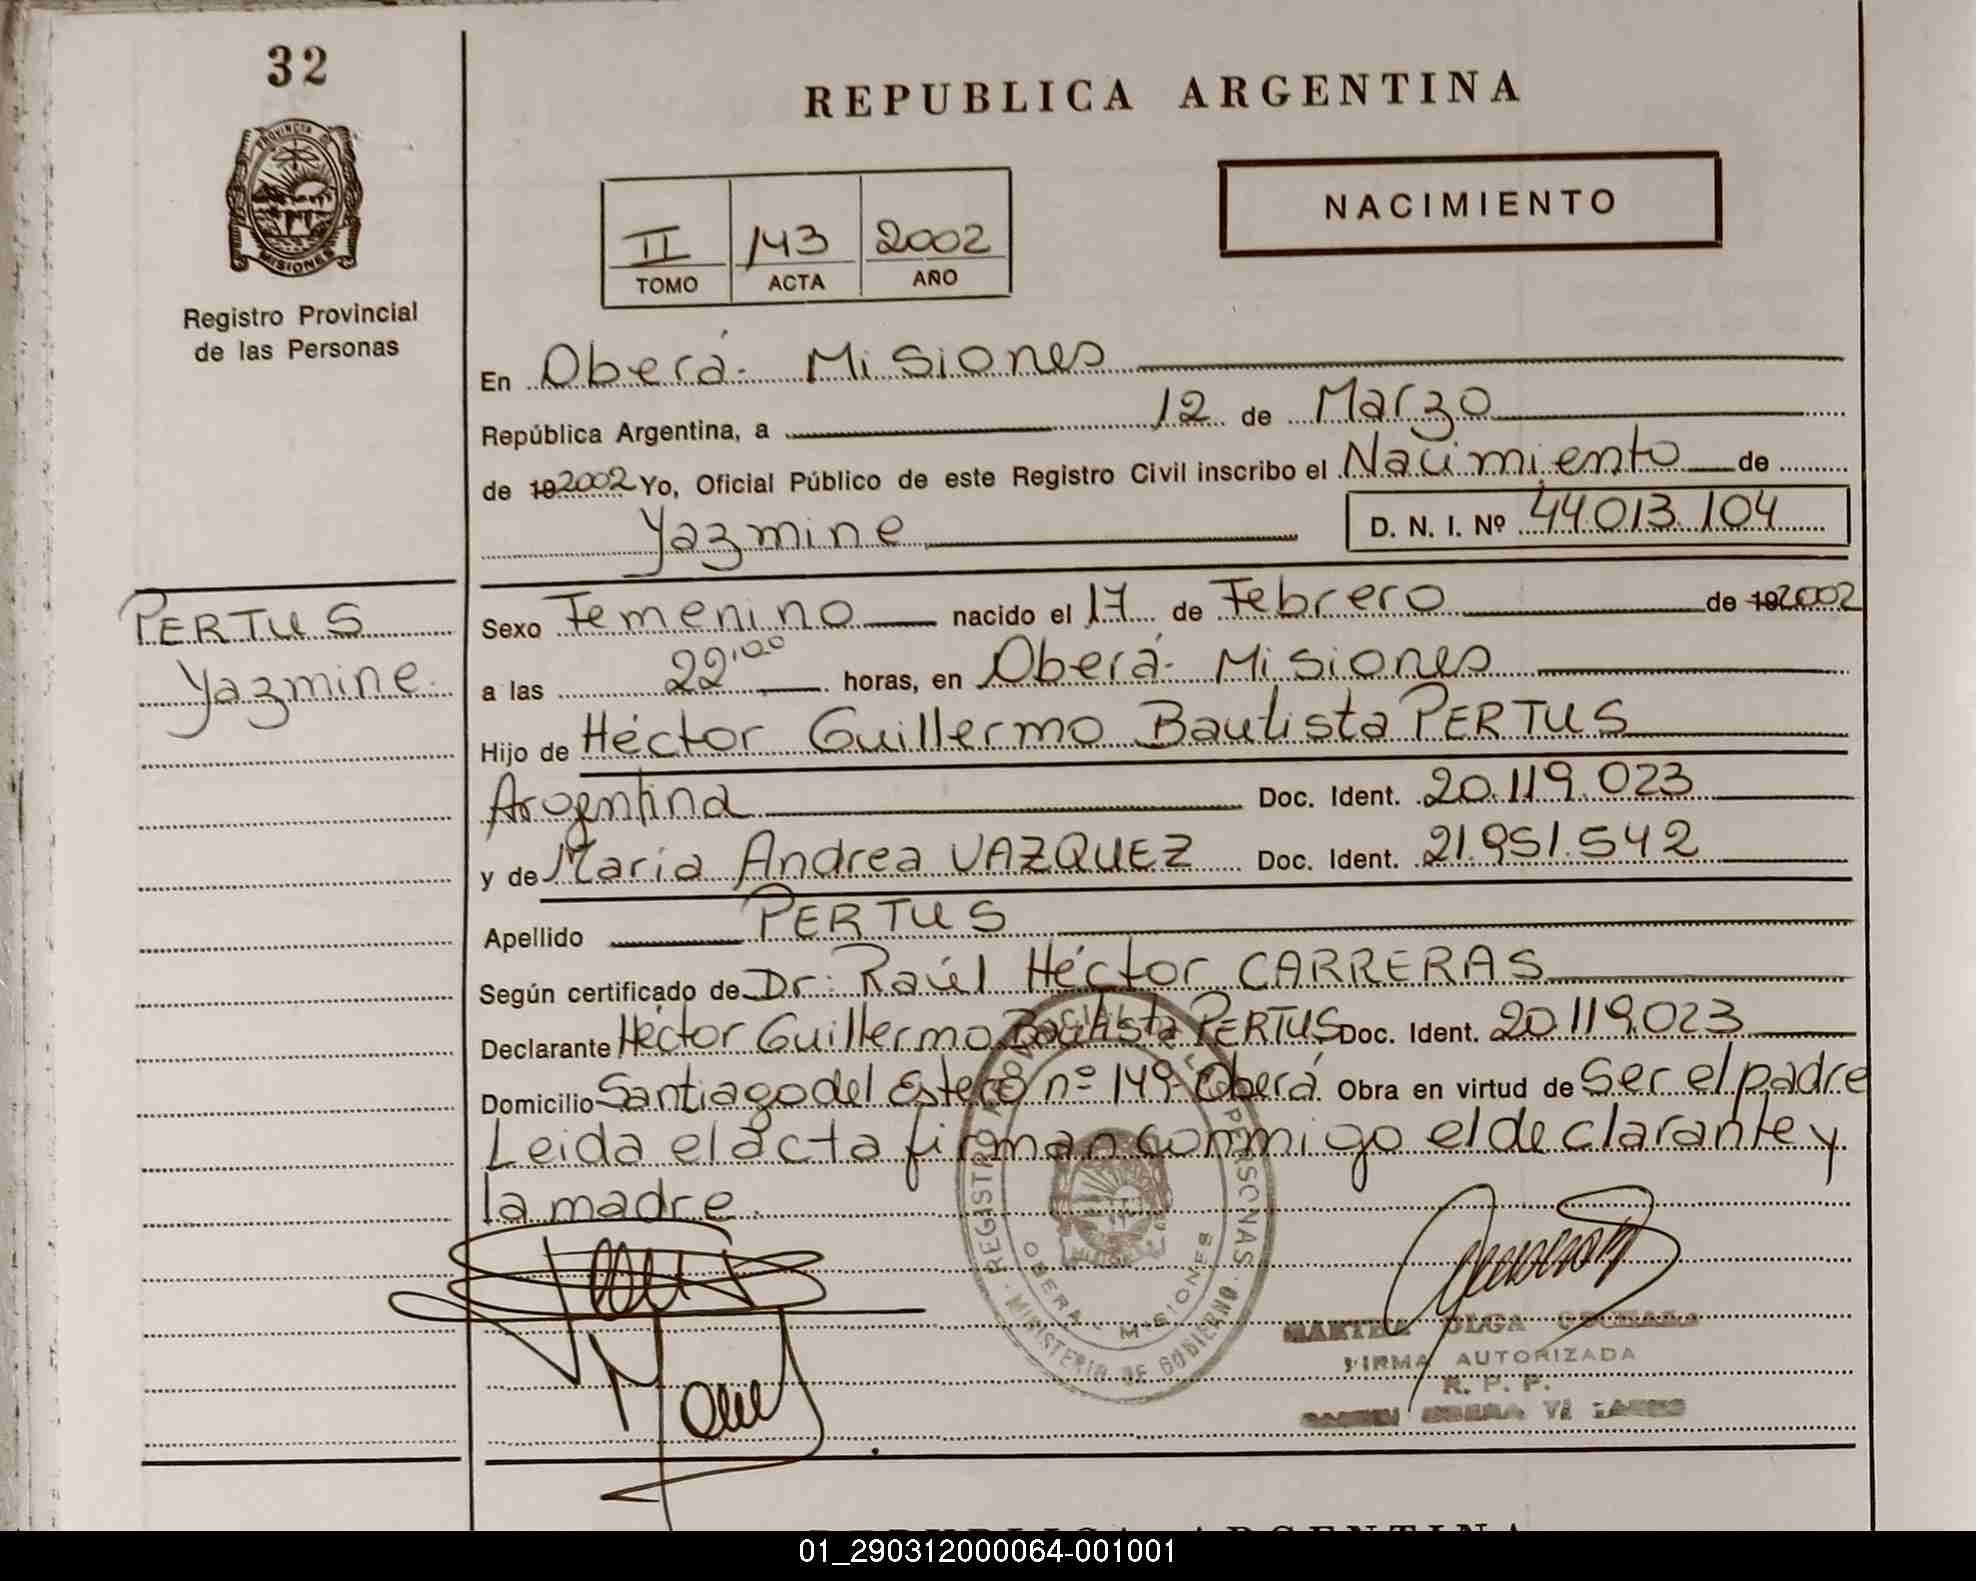 32
REPUBLICA ARGENTINA
PROVINCIA DE
MISIONES
Registro Provincial
de las Personas
NACIMIENTO
II 143 2002
TOMO ACTA AÑO
En Oberá - Misiones
República Argentina, a 12 de Marzo
de 192002 Yo, Oficial Público de este Registro Civil inscribo el Nacimiento de
Yazmine D. N. I. Nº 44.013.104
PERTUS
Yazmine.
Sexo Femenino nacido el 17 de Febrero de 192002
a las 22,00 horas, en Oberá - Misiones
Hijo de Héctor Guillermo Bautista PERTUS
Argentina Doc. Ident. 20.119.023
y de María Andrea VAZQUEZ Doc. Ident. 21.951.542
Apellido PERTUS
Según certificado de Dr: Raúl Héctor CARRERAS
Declarante Héctor Guillermo Bautista PERTUS Doc. Ident. 20.119.023
Domicilio Santiago del Estero nº 149 - Oberá Obra en virtud de Ser el padre
Leida el acta firman conmigo el declarante y
la madre.
REGISTRO PERSONAS
OBERA - MISIONES
MINISTERIO DE GOBIERNO
MARTHA OLGA
FIRMA AUTORIZADA
R. P. P.
REPUBLICA ARGENTINA
01_290312000064-001001